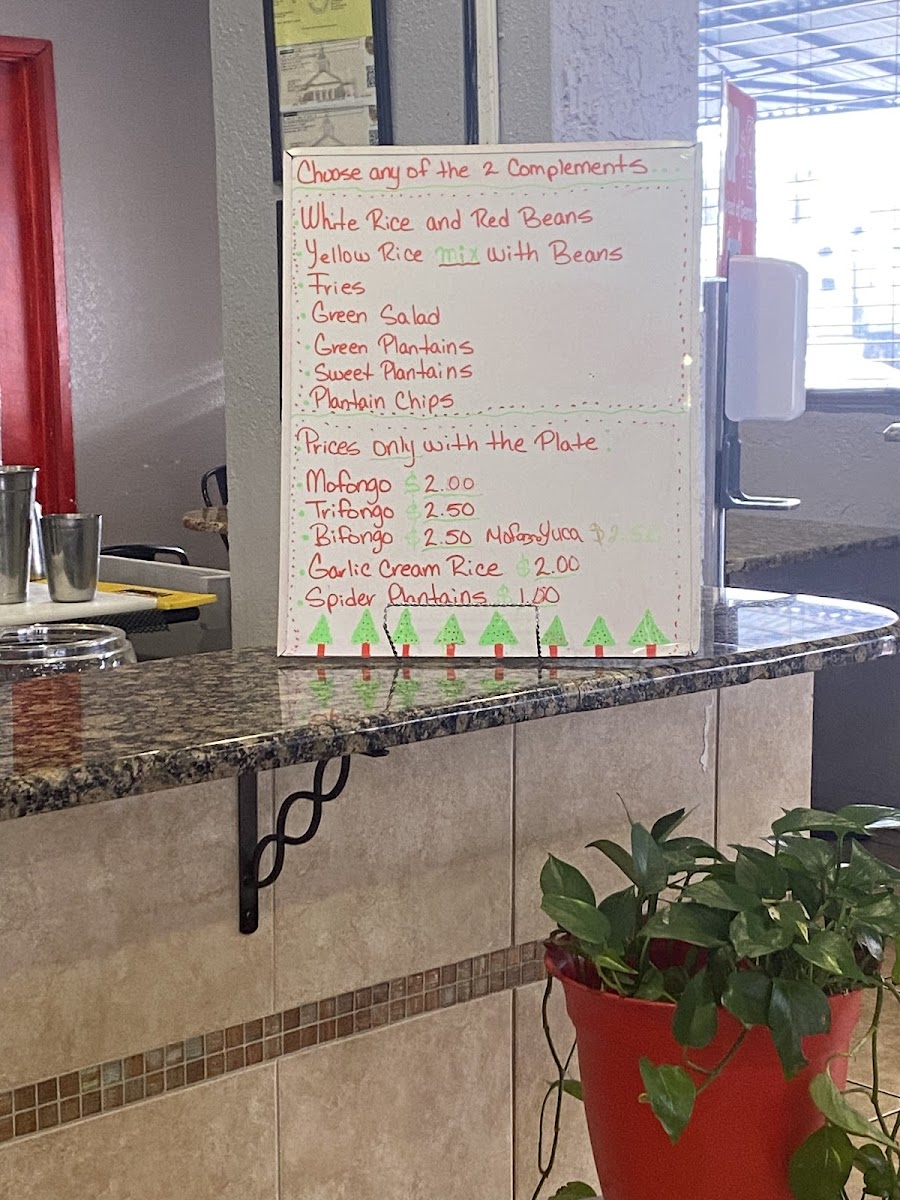 Choose any of the 2 Complements...
White Rice and Red Beans
Yellow Rice mix with Beans
Fries
Green Salad
Green Plantains
Sweet Plantains
Plantain Chips
Prices only with the Plate.
Mofongo $2.00
Trifongo $2.50
Bifongo $2.50 MofonYuca $2.50
Garlic Cream Rice $2.00
Spider Plantains $1.00